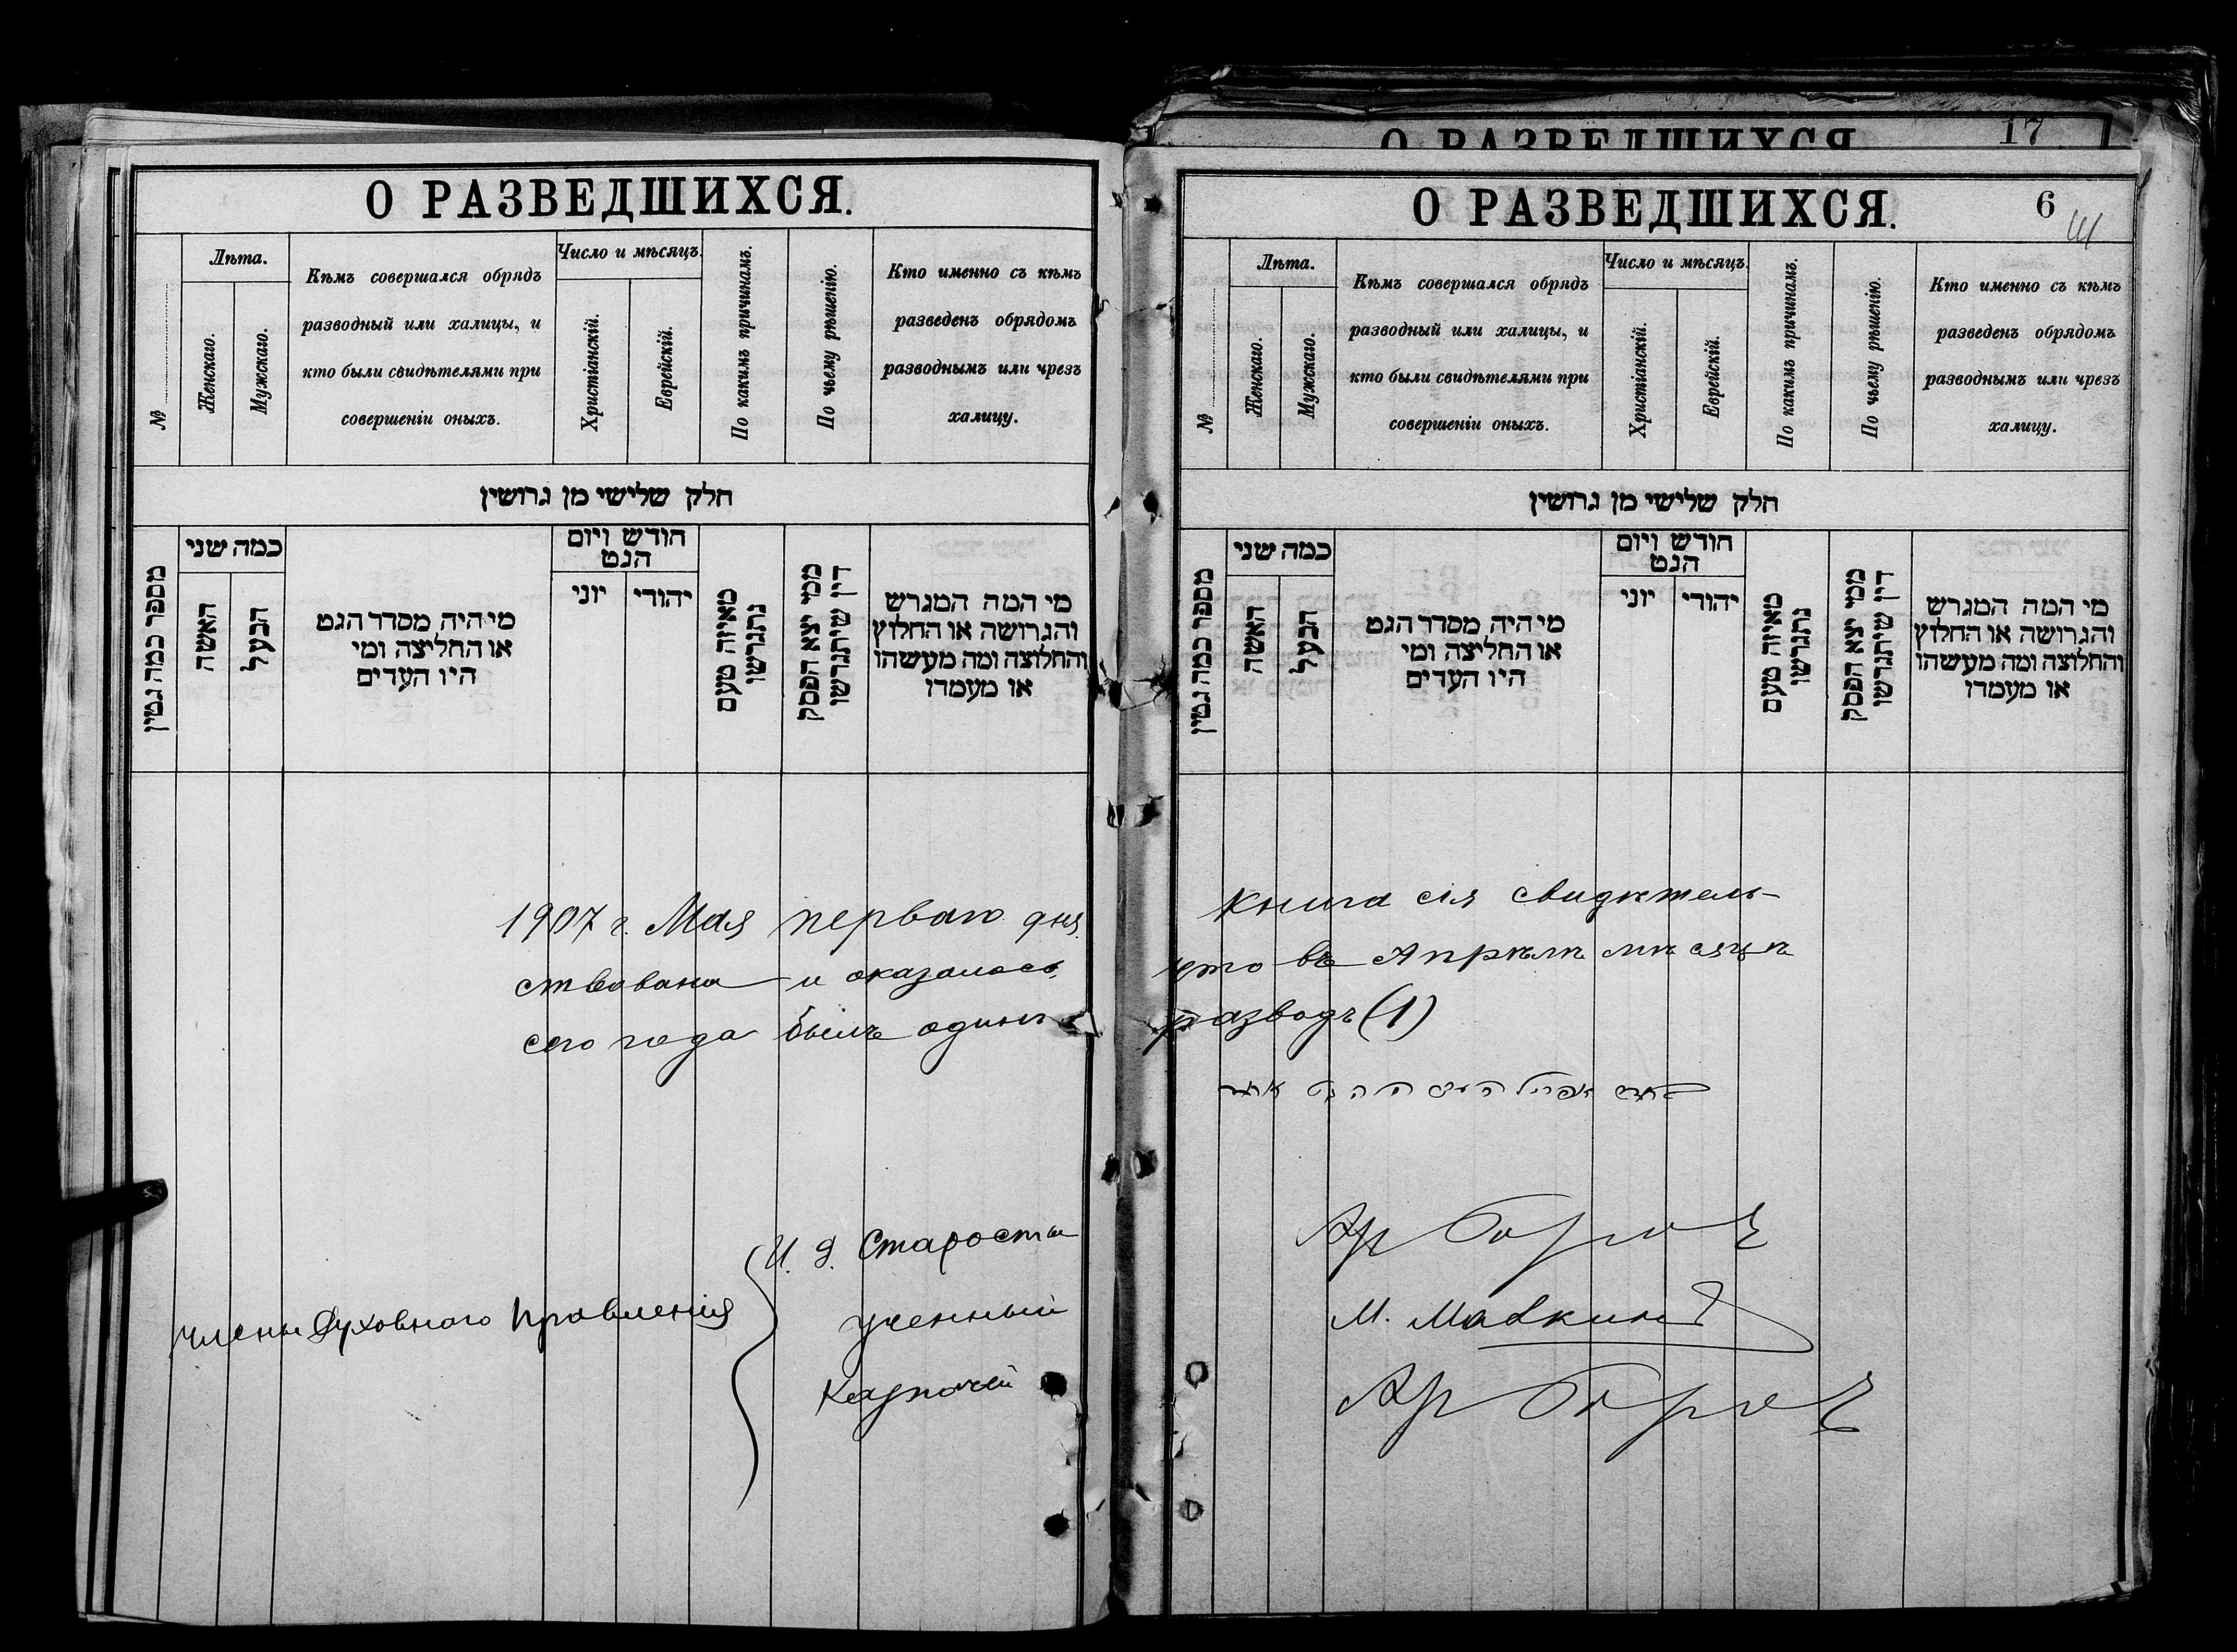 О РАЗВЕДШИХСЯ.
№
Лѣта.
Женскаго.
Мужскаго.
Кѣмъ совершался обрядъ
разводный или халицы, и
кто были свидѣтелями при
совершеніи оныхъ.
Число и мѣсяцъ.
Христіанскій.
Еврейскій.
По какимъ причинамъ.
По чьему рѣшенію.
Кто именно съ кѣмъ
разведенъ обрядомъ
разводнымъ или чрезъ
халицу.
חלק שלישי מן גרושין
מספר כמה גטין
כמה שני
האשה
הבעל
מי היה מסדר הגט
או החליצה ומי
היו העדים
חודש ויום
הגט
יוני
יהודי
מאיזה טעם
נתגרשו
ממי יצא הפסק
דין שיתגרשו
מי המה המגרש
והגרושה או החלוץ
והחלוצה ומה מעשהו
או מעמדו
1907 г. Мая перваго дня
ствована и оказалось
сего года былъ одинъ
Члены Духовнаго Правленія
И. д. Старосты
Ученный
Казначей
17
О РАЗВЕДШИХСЯ
О РАЗВЕДШИХСЯ.
6
№
Лѣта.
Женскаго.
Мужскаго.
Кѣмъ совершался обрядъ
разводный или халицы, и
кто были свидѣтелями при
совершеніи оныхъ.
Число и мѣсяцъ.
Христіанскій.
Еврейскій.
По какимъ причинамъ.
По чьему рѣшенію.
Кто именно съ кѣмъ
разведенъ обрядомъ
разводнымъ или чрезъ
халицу.
חלק שלישי מן גרושין
מספר כמה גטין
כמה שני
האשה
הבעל
מי היה מסדר הגט
או החליצה ומי
היו העדים
חודש ויום
הגט
יוני
יהודי
מאיזה טעם
נתגרשו
ממי יצא הפסק
דין שיתגרשו
מי המה המגרש
והגרושה או החלוץ
והחלוצה ומה מעשהו
או מעמדו
книга сія свидѣтель-
что въ Апрѣлѣ мѣсяцѣ
разводъ (1)
אפריל
М.